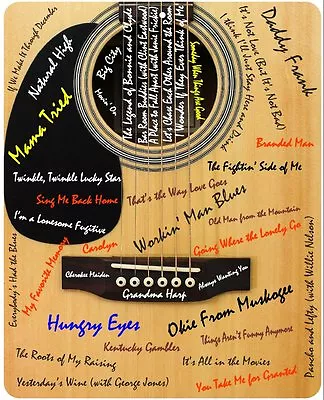 If We Make It Through December
Natural High
Mama Tried
Big City
Movin' On
The Legend of Bonnie and Clyde
Bar Room Buddies (with Clint Eastwood)
A Place to Fall Apart (with Janie Fricke)
Let's Chase Each Other Around the Room
I Wonder If They Ever Think of Me
Someday When Things Are Good
I Think I'll Just Stay Here and Drink
It's Not Love (But It's Not Bad)
Daddy Frank
Branded Man
The Fightin' Side of Me
Twinkle, Twinkle Lucky Star
Sing Me Back Home
I'm a Lonesome Fugitive
That's the Way Love Goes
Workin' Man Blues
Old Man from the Mountain
Going Where the Lonely Go
Everybody's Had the Blues
My Favorite Memory
Carolyn
Cherokee Maiden
Grandma Harp
Always Wanting You
Pancho and Lefty (with Willie Nelson)
Hungry Eyes
Okie From Muskogee
Kentucky Gambler
Things Aren't Funny Anymore
The Roots of My Raising
It's All in the Movies
Yesterday's Wine (with George Jones)
You Take Me for Granted